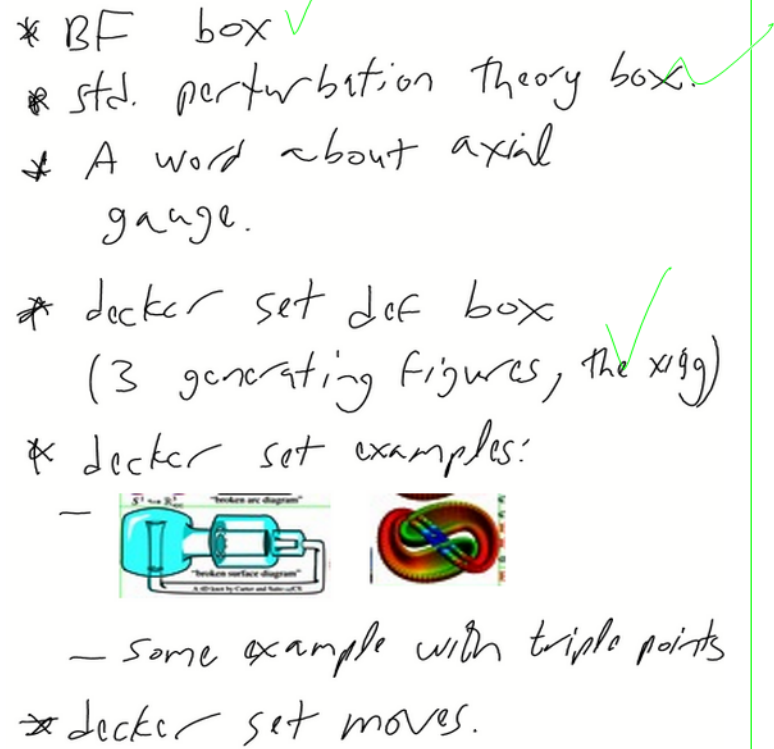 * BF box ✓
* std. perturbation theory box. ✓
* A word about axial
gauge.
* decker set def box ✓
(3 generating figures, the
* decker set examples:
-
"broken arc diagram"
"broken surface diagram"
A 4D knot by Carter and Saito
- some example with triple points
* decker set moves.